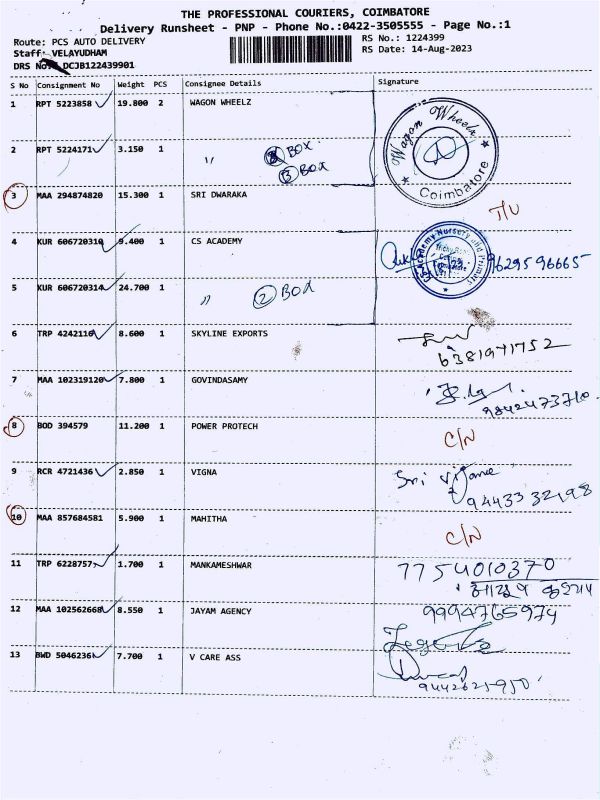 THE PROFESSIONAL COURIERS, COIMBATORE
Delivery Runsheet - PNP - Phone No.:0422-3505555 - Page No.:1
Route: PCS AUTO DELIVERY
RS No.: 1224399
Staff: VELAYUDHAM
RS Date: 14-Aug-2023
DRS No.: DCJB122439901
S No Consignment No Weight PCS Consignee Details Signature
1 RPT 5223858 19.800 2 WAGON WHEELZ
Wagon Wheelz
Coimbatore
2 RPT 5224171 3.150 1 " BOX
③ BOX
3 MAA 294874820 15.300 1 SRI DWARAKA
T/U
4 KUR 606720310 9.400 1 CS ACADEMY
Academy Nursery and Primary
9629596665
5 KUR 606720314 24.700 1 " ② BOX
6 TRP 4242116 8.600 1 SKYLINE EXPORTS
6381971752
7 MAA 102319120 7.800 1 GOVINDASAMY
9842473710
8 BOD 394579 11.200 1 POWER PROTECH
C/N
9 RCR 4721436 2.850 1 VIGNA
Sri
9443332198
10 MAA 857684581 5.900 1 MAHITHA
C/N
11 TRP 6228757 1.700 1 MANKAMESHWAR
7754010370
12 MAA 102562668 8.550 1 JAYAM AGENCY
9994765974
13 BWD 5046236 7.700 1 V CARE ASS
9442621950